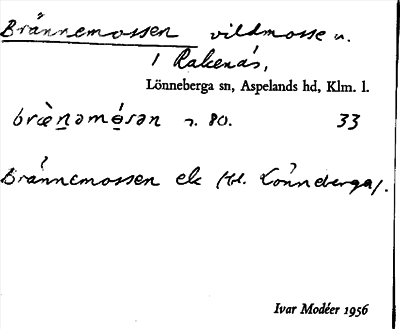 Brännemossen vildmosse n.
i Rakenäs,
Lönneberga sn, Aspelands hd, Klm. l.
bræ̀n̠əmó̠sən s. 80. 33
Brännemossen ek (bl. Lönneberga).
Ivar Modéer 1956